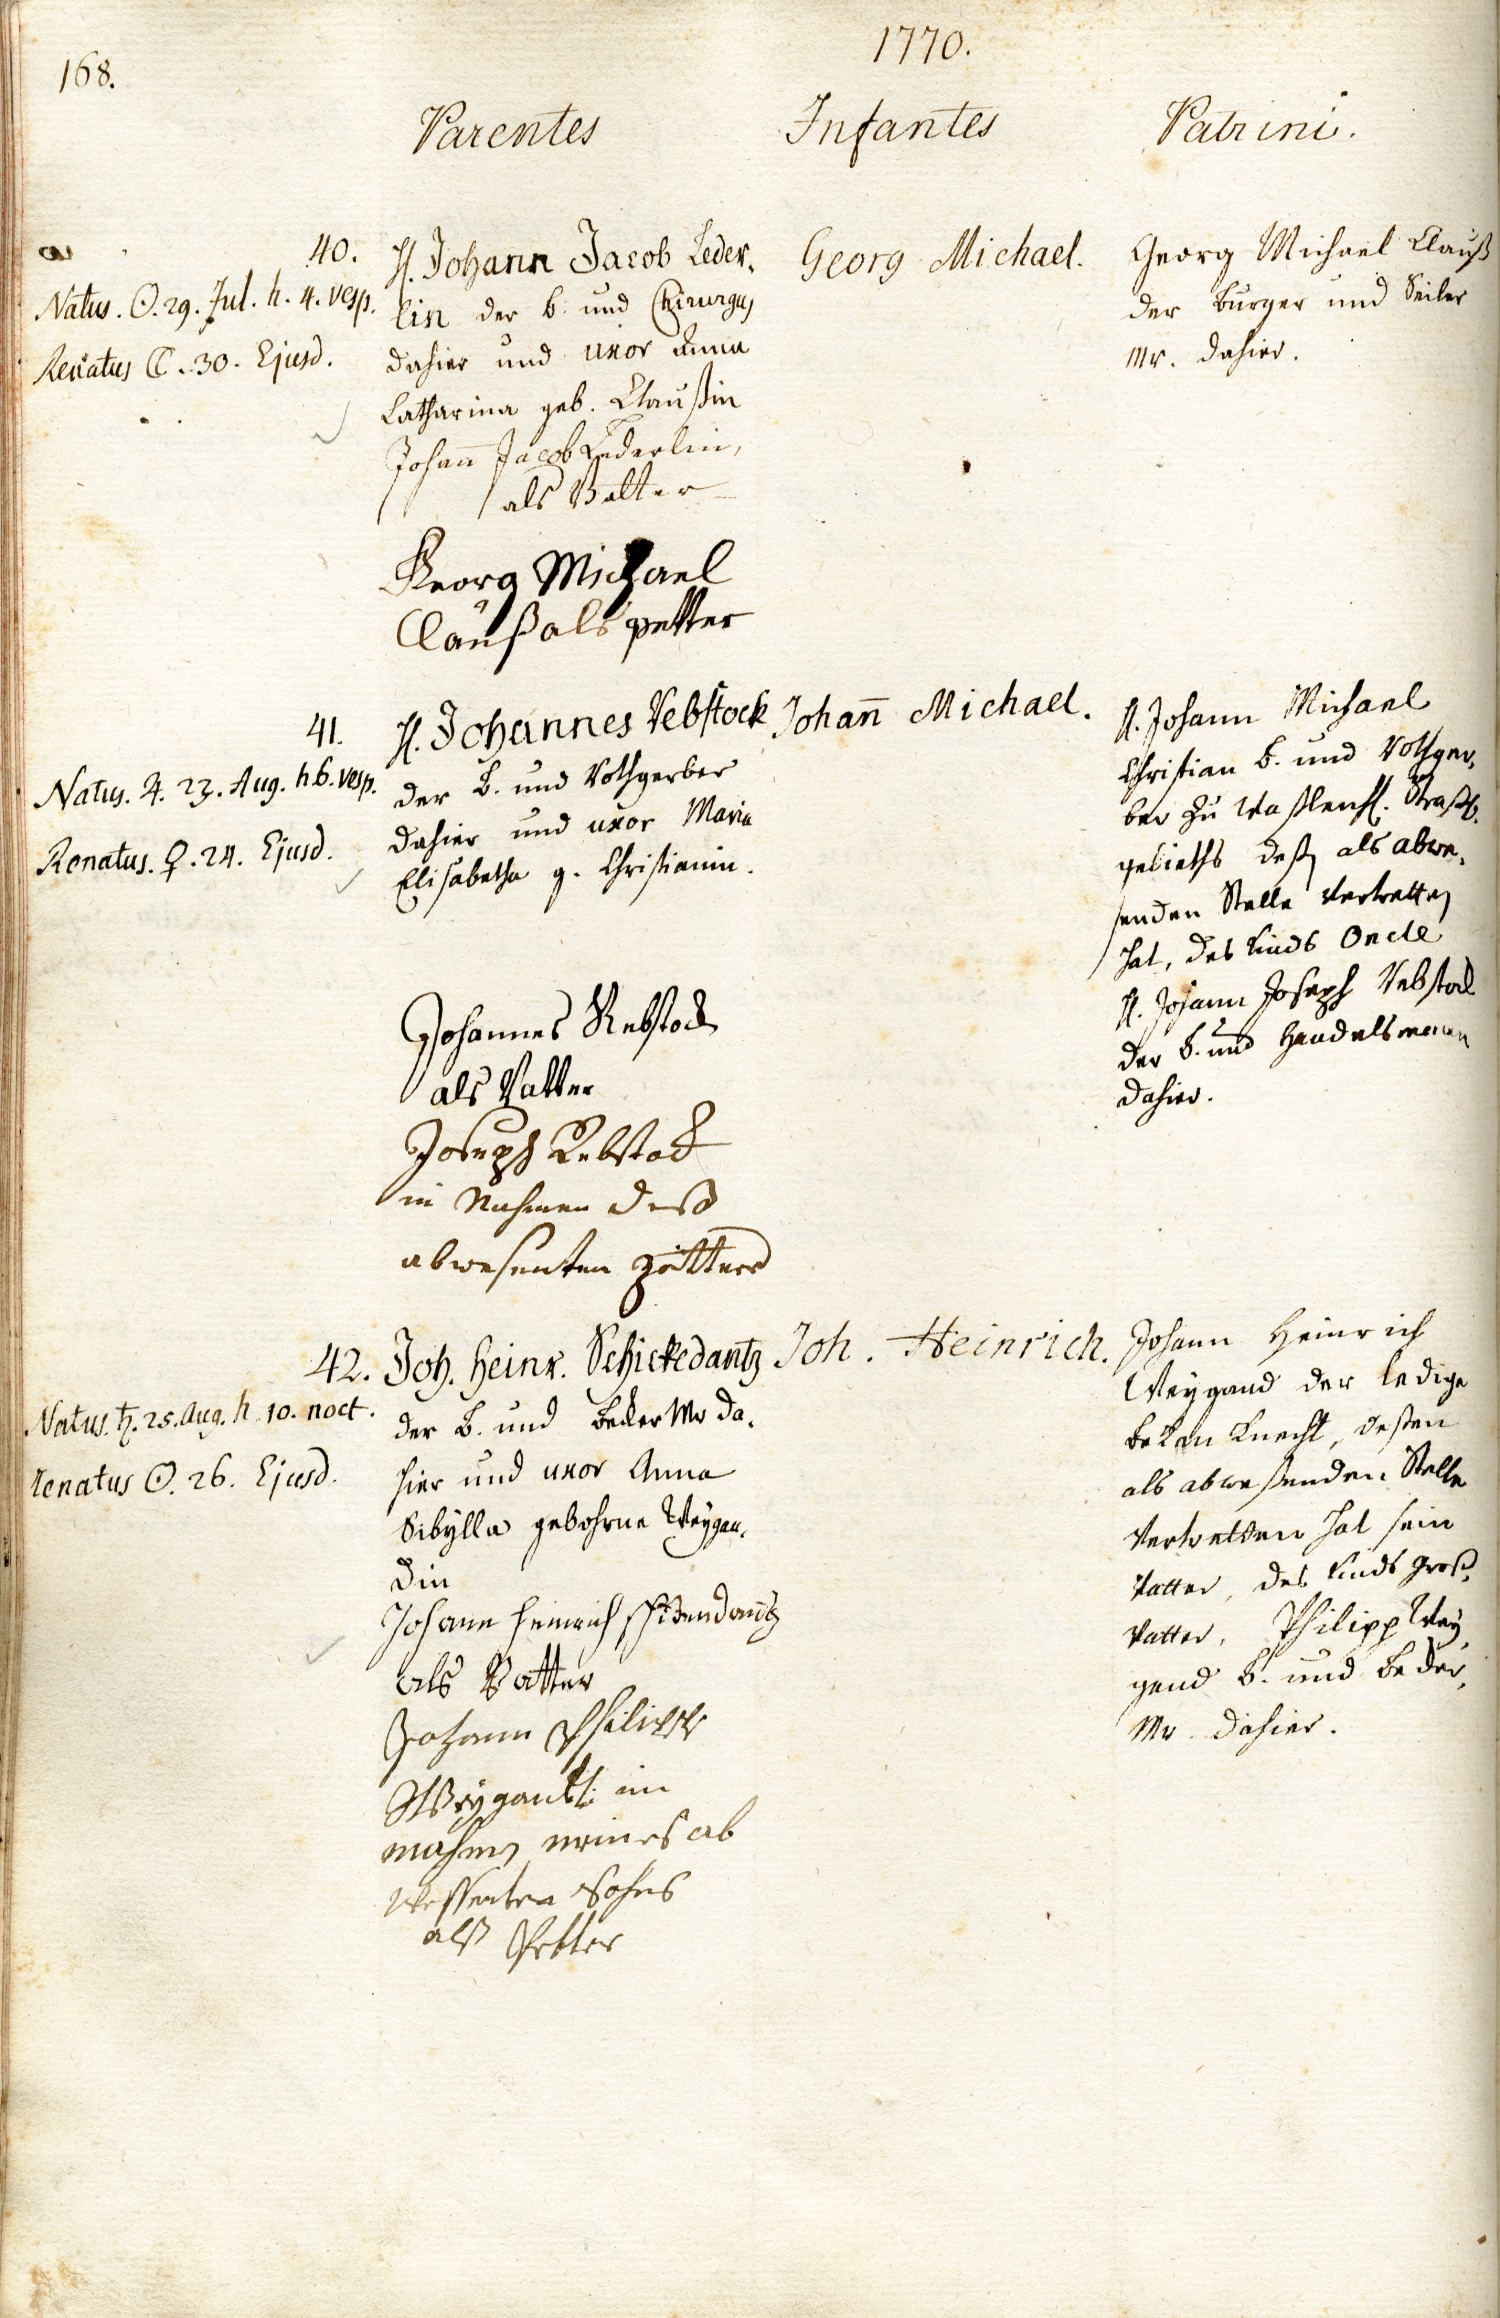 168.
1770.
Parentes
Infantes
Patrini.
40.
Natus. ☉. 29. Jul. h. 4. vesp.
Renatus ☾. 30. Ejusd.
H. Johann Jacob Leder,
lin der b. und Chirurgus
dahier und uxor Anna
Catharina geb. Claußin
Johan̄ Jacob Lederlin,
als Vatter
Georg Michael
Clauß als petter
Georg Michael.
Georg Michael Clauß
der burger und Seiler
Mr. dahier.
41.
Natus. ♃. 23. Aug. h. 6. vesp.
Renatus. ♀. 24. Ejusd.
H. Johannes Rebstock
der b. und Rothgerber
dahier und uxor Maria
Elisabetha g. Christianin.
Johannes Rebstock
als Vatter
Joseph Rebstock
in Nahmen deß
abwesenten
Johan̄ Michael.
H. Johann Michael
Christian b. und Rothger,
ber zu Waßlenh. Straßb.
gebieths deßen als abwe,
senden Stelle vertretten
hat, des Kinds Oncle
H. Johann Joseph Rebstock
der b. und Handelsmann
dahier.
42.
Natus. ♄. 25. Aug. h. 10. noct.
renatus ☉. 26. Ejusd.
Joh. Heinr. Schickedantz
der b. und becker Mr da,
hier und uxor Anna
Sibylla gebohrne Weygan,
din
Johann Heinrich Schickendantz
als Vatter
Johann Philipp
Weygandt im
nahmen meines ab
wessenten Sohns
alß Petter
Joh. Heinrich.
Johann Heinrich
Weygand der ledige
becken Knecht, deßen
als abweßenden Stelle
vertretten hat sein
Vatter, des Kinds Groß,
Vatter, Philipp Wey,
gand b. und becker,
Mr dahier.